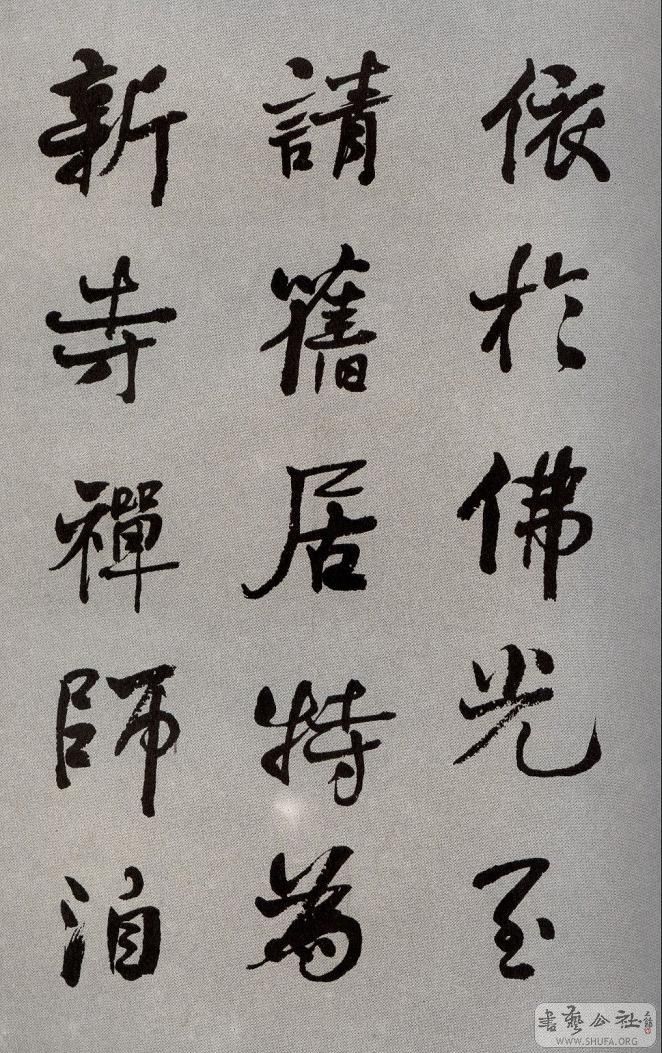 依於佛光至
請舊居特為
新寺禪師洎
書藝公社
WWW.SHUFA.ORG